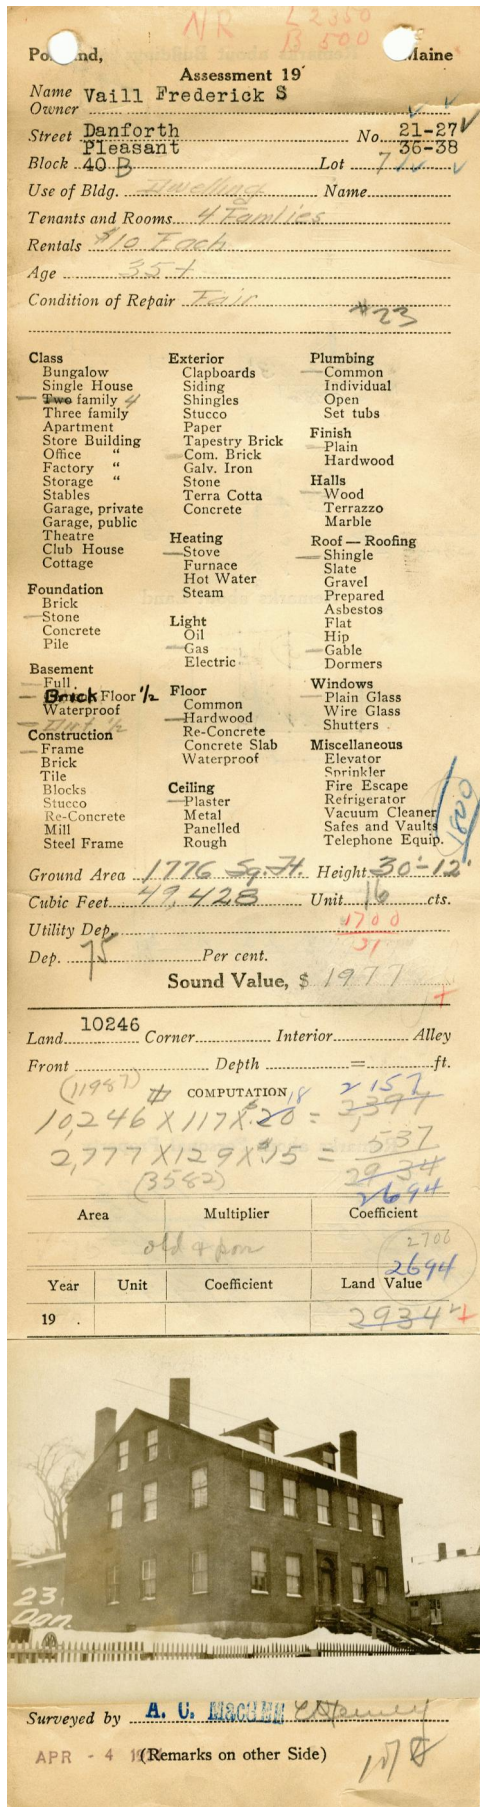 NR L 2350
B 500
Portland, Maine
Assessment 19
Name Owner Vaill Frederick S
Street Danforth No. 21-27
Pleasant 36-38
Block 40 B Lot 7
Use of Bldg. Dwelling Name
Tenants and Rooms 4 Families
Rentals $10 Each
Age 35+
Condition of Repair Fair
#23
Class
Bungalow
Single House
Two family 4
Three family
Apartment
Store Building
Office "
Factory "
Storage "
Stables
Garage, private
Garage, public
Theatre
Club House
Cottage
Foundation
Brick
Stone
Concrete
Pile
Basement
Full
Brick Floor 1/2
Waterproof
Dirt 1/2
Construction
Frame
Brick
Tile
Blocks
Stucco
Re-Concrete
Mill
Steel Frame
Exterior
Clapboards
Siding
Shingles
Stucco
Paper
Tapestry Brick
Com. Brick
Galv. Iron
Stone
Terra Cotta
Concrete
Heating
Stove
Furnace
Hot Water
Steam
Light
Oil
Gas
Electric
Floor
Common
Hardwood
Re-Concrete
Concrete Slab
Waterproof
Ceiling
Plaster
Metal
Panelled
Rough
Plumbing
Common
Individual
Open
Set tubs
Finish
Plain
Hardwood
Halls
Wood
Terrazzo
Marble
Roof — Roofing
Shingle
Slate
Gravel
Prepared
Asbestos
Flat
Hip
Gable
Dormers
Windows
Plain Glass
Wire Glass
Shutters
Miscellaneous
Elevator
Sprinkler
Fire Escape
Refrigerator
Vacuum Cleaner
Safes and Vaults
Telephone Equip.
1800
Ground Area 1776 Sq. Ft. Height 30'-12'
Cubic Feet 49,428 Unit 16 cts.
Utility Dep. 1700
51
Dep. 75 Per cent.
Sound Value, $ 1977
+
Land 10246 Corner Interior Alley
Front Depth = ft.
(11987) COMPUTATION 18 2157
10,246 X 117 X $.20 = 2,397
2,777 X 129 X $.15 = 537
(3582) 2934
2694
Area Multiplier Coefficient
old & poor 2700
2694
Year Unit Coefficient Land Value
19 . 2934 +
23
Dan.
Surveyed by A. C. Mac
APR - 4 19 (Remarks on other Side)